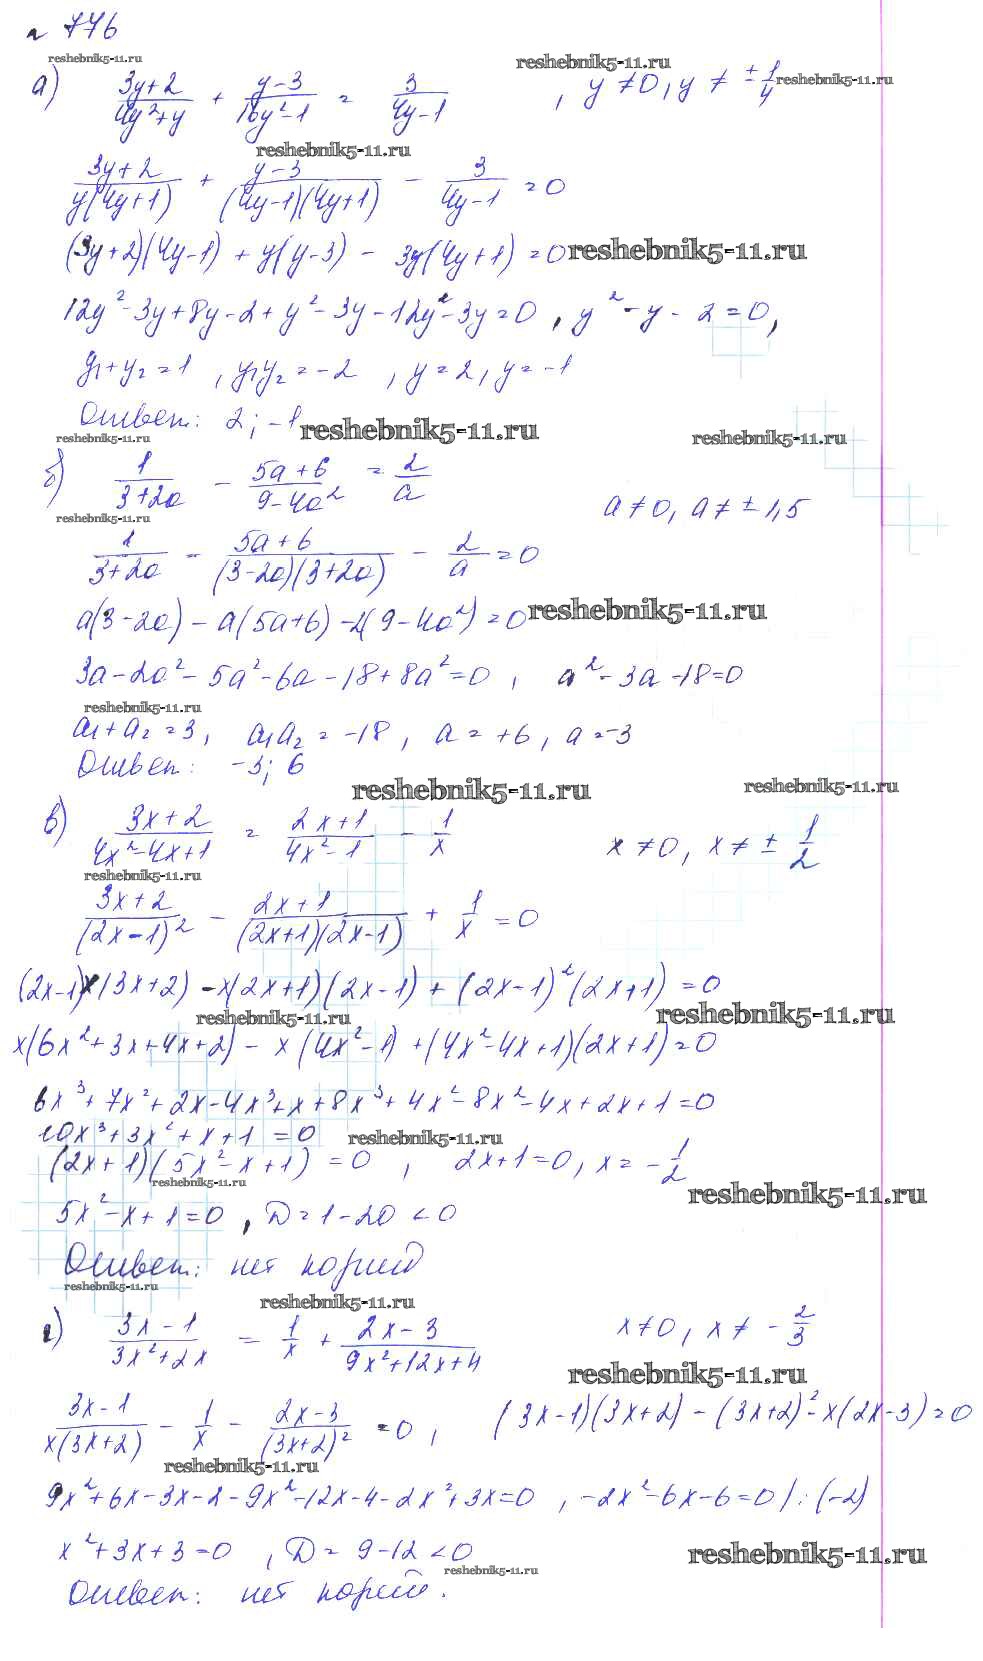 № 776
reshebnik5-11.ru
reshebnik5-11.ru
а) (3y+2)/(4y²+y) + (y-3)/(16y²-1) = 3/(4y-1) , y ≠ 0, y ≠ ± 1/4
reshebnik5-11.ru
reshebnik5-11.ru
(3y+2)/(y(4y+1)) + (y-3)/((4y-1)(4y+1)) - 3/(4y-1) = 0
(3y+2)(4y-1) + y(y-3) - 3y(4y+1) = 0 reshebnik5-11.ru
12y²-3y+8y-2+y²-3y-12y²-3y=0 , y²-y-2=0,
y₁+y₂=1 , y₁y₂=-2 , y=2, y=-1
Ответ: 2; -1 reshebnik5-11.ru
reshebnik5-11.ru
reshebnik5-11.ru
б) 1/(3+2a) - (5a+6)/(9-4a²) = 2/a a≠0, a≠±1,5
reshebnik5-11.ru
1/(3+2a) - (5a+6)/((3-2a)(3+2a)) - 2/a = 0
a(3-2a) - a(5a+6) - 2(9-4a²) = 0 reshebnik5-11.ru
3a-2a²-5a²-6a-18+8a²=0 , a²-3a-18=0
reshebnik5-11.ru
a₁+a₂=3, a₁a₂=-18, a=+6, a=-3
Ответ: -3; 6
reshebnik5-11.ru
reshebnik5-11.ru
в) (3x+2)/(4x²-4x+1) = (2x+1)/(4x²-1) - 1/x x≠0, x≠± 1/2
reshebnik5-11.ru
(3x+2)/(2x-1)² - (2x+1)/((2x+1)(2x-1)) + 1/x = 0
(2x-1)x(3x+2) - x(2x+1)(2x-1) + (2x-1)²(2x+1) = 0
reshebnik5-11.ru
reshebnik5-11.ru
x(6x²+3x+4x+2) - x(4x²-1) + (4x²-4x+1)(2x+1)=0
6x³+7x²+2x-4x³+x+8x³+4x²-8x²-4x+2x+1=0
10x³+3x²+x+1=0 reshebnik5-11.ru
(2x+1)(5x²-x+1) = 0 , 2x+1=0, x=-1/2
reshebnik5-11.ru
reshebnik5-11.ru
5x²-x+1=0 , D=1-20<0
Ответ: нет корней
reshebnik5-11.ru
reshebnik5-11.ru
г) (3x-1)/(3x²+2x) = 1/x + (2x-3)/(9x²+12x+4) x≠0, x≠-2/3
reshebnik5-11.ru
(3x-1)/(x(3x+2)) - 1/x - (2x-3)/(3x+2)² = 0 , (3x-1)(3x+2) - (3x+2)²-x(2x-3)=0
reshebnik5-11.ru
9x²+6x-3x-2-9x²-12x-4-2x²+3x=0 , -2x²-6x-6=0 /:(-2)
x²+3x+3=0 , D=9-12<0 reshebnik5-11.ru
reshebnik5-11.ru
Ответ: нет корней.